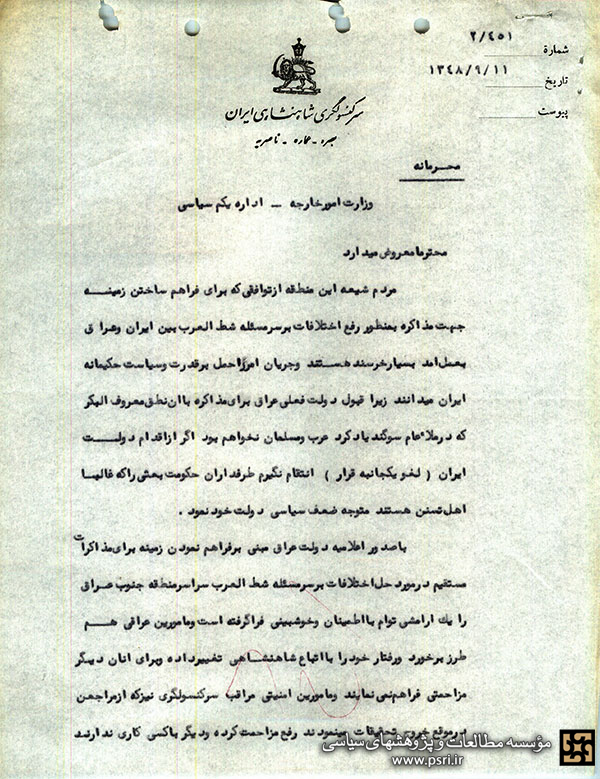 شماره ۲/٤٥١
تاریخ ۱۳٤۸/۹/۱۱
پیوست
سرکنسولگری شاهنشاهی ایران
بصره - عماره - ناصریه
محرمانه
وزارت امور خارجه - اداره یکم سیاسی
محترما معروض میدارد
مردم شیعه این منطقه از توافقی که برای فراهم ساختن زمینه
جهت مذاکره بمنظور رفع اختلافات بر سر مسئله شط العرب بین ایران و عراق
بعمل امد بسیار خرسند هستند و جریان امر را حمل بر قدرت و سیاست حکیمانه
ایران میدانند زیرا قبول دولت فعلی عراق برای مذاکره با ان نطق معروف البکر
که در ملاء عام سوگند یاد کرد عرب و مسلمان نخواهم بود اگر از اقدام دولت
ایران ( لغو یکجانبه قرار ) انتقام نگیرم طرفداران حکومت بعثی را که غالبا
اهل تسنن هستند متوجه ضعف سیاسی دولت خود نمود .
با صدور اعلامیه دولت عراق مبنی بر فراهم نمودن زمینه برای مذاکرات
مستقیم در مورد حل اختلافات بر سر مسئله شط العرب سراسر منطقه جنوب عراق
را یک ارامشی توام با اطمینان و خوشبینی فرا گرفته است و مامورین عراقی هم
طرز برخورد و رفتار خود را با اتباع شاهنشاهی تغییر داده و برای انان دیگر
مزاحمتی فراهم نمی نمایند و مامورین امنیتی مراقب سرکنسولگری نیز که از مراجعین
در موقع خروج تحقیقات مینمودند رفع مزاحمت کرده و دیگر با کسی کاری ندارند
مؤسسه مطالعات و پژوهشهای سیاسی
www.psri.ir